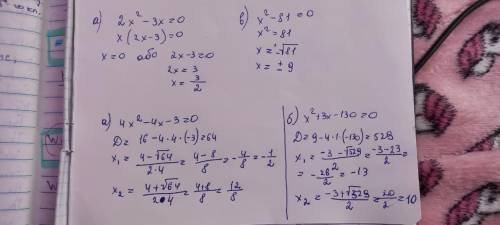 а) 2x² - 3x = 0
x(2x-3) = 0
x = 0 або 2x - 3 = 0
2x = 3
x = 3/2
в) x² - 81 = 0
x² = 81
x = ±√81
x = ± 9
а) 4x² - 4x - 3 = 0
D = 16 - 4·4·(-3) = 64
x₁ = (4-√64)/(2·4) = (4-8)/8 = -4/8 = -1/2
x₂ = (4+√64)/(2·4) = (4+8)/8 = 12/8
б) x² + 3x - 130 = 0
D = 9 - 4·1·(-130) = 529
x₁ = (-3-√529)/2 = (-3-23)/2 =
= -26/2 = -13
x₂ = (-3+√529)/2 = 20/2 = 10